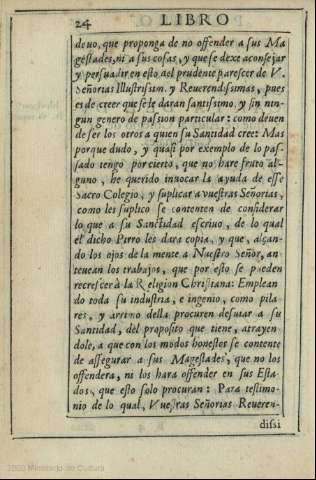 24 LIBRO
deuo, que proponga de no offender a sus Ma
gestades, ni a sus cosas, y que se dexe aconsejar
y persuadir en esto, del prudente parescer de V.
Señorias Illustrissim. y Reuerendissimas, pues
es de creer que se le daran santissimo, y sin nin-
gun genero de passion particular: como deuen
de ser los otros a quien su Santidad cree: Mas
porque dudo, y quasi por exemplo de lo pas-
sado tengo por cierto, que no hare fruto al-
guno, he querido inuocar la ayuda de esse
Sacro Colegio, y suplicar a vuestras Señorias,
como les suplico se contenten de considerar
lo que a su Sanctidad escriuo, de lo qual
el dicho Pirro les dara copia, y que, alçan-
do los ojos de la mente a Nuestro Señor, an
teuean los trabajos, que por esto se pueden
recrescer à la Religion Christiana: Emplean
do toda su industria, e ingenio, como pila
res, y arrimo della procuren desuiar a su
Santidad, del proposito que tiene, atrayen
dole, a que con los modos honestos se contente
de assegurar a sus Magestades, que no los
offendera, ni los hara offender en sus Esta
dos, que esto solo procuran: Para testimo-
nio de lo qual, Vuestras Señorias Reueren-
dissi
2009 Ministerio de Cultura